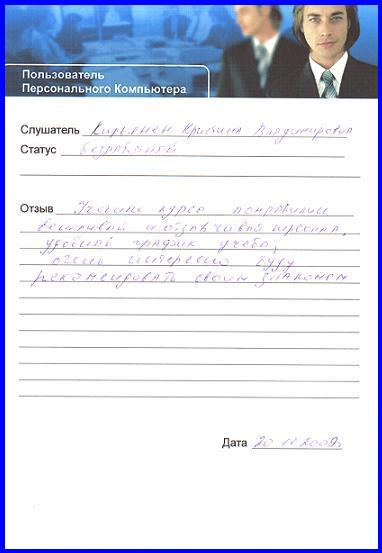 Пользователь
Персонального Компьютера
Слушатель Кирьянен Кристина Владимировна
Статус
Отзыв Учебные курсы понравились
вежливый и отзывчивый персонал,
удобный график учебы,
очень интересно буду
рекомендовать своим знакомым
Дата 20 11 2009г